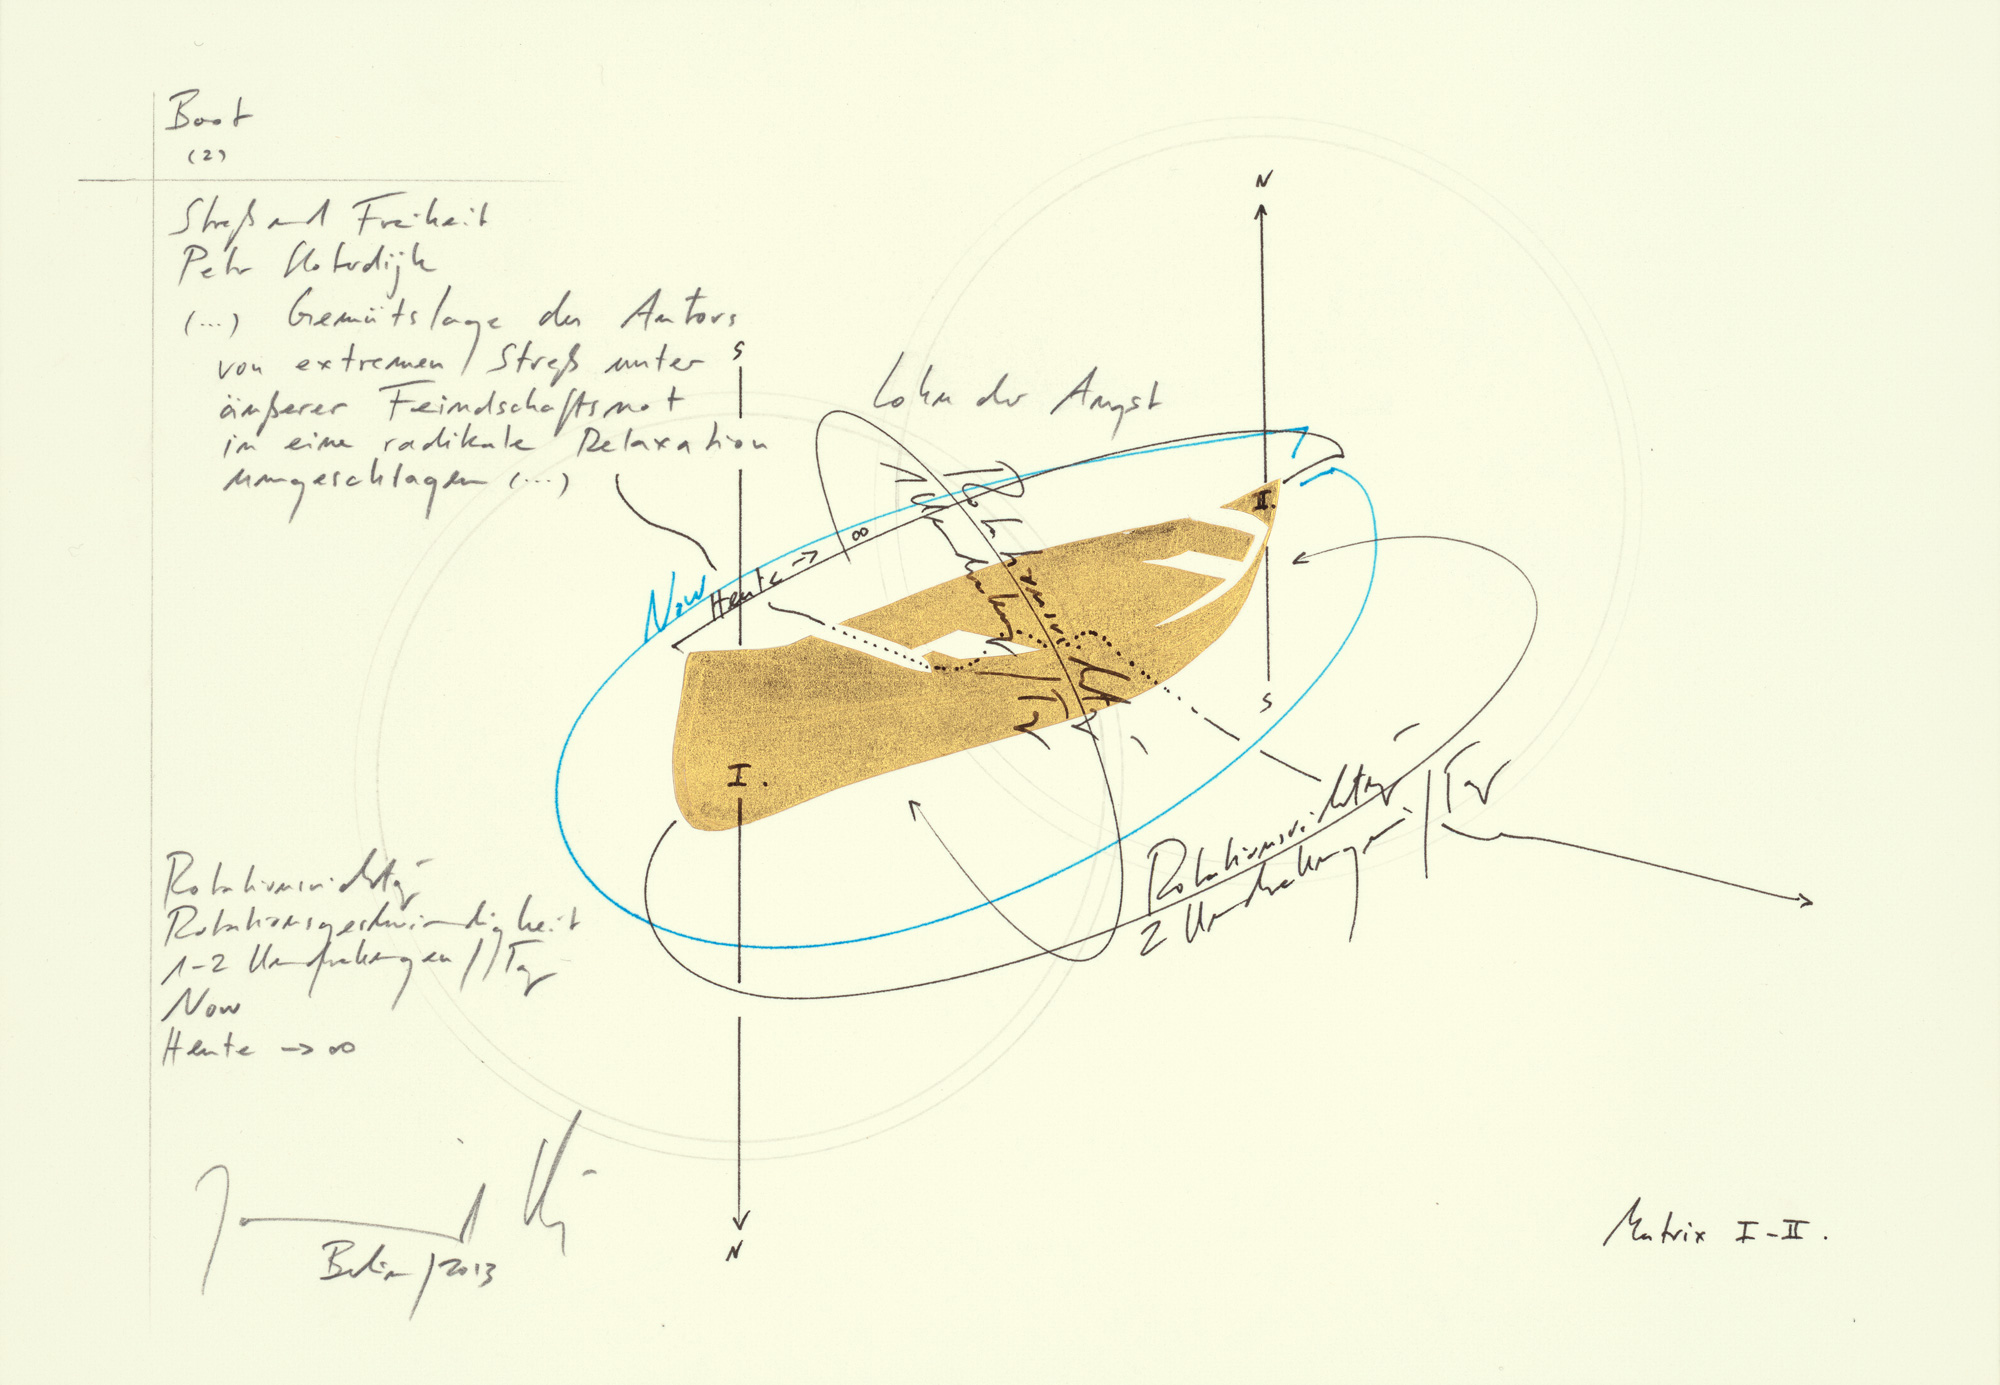 Boot
(2)
Streß und Freiheit
Peter Sloterdijk
(...) Gemütslage des Autors
von extremen Streß unter
äußerer Feindschaftsnot
in eine radikale Relaxation
umgeschlagen (...)
N
S
Lohn der Angst
Now
Heute → ∞
Rotationsrichtung
1 Umdrehung / Tag
II.
I.
S
Rotationsrichtung
2 Umdrehungen / Tag
Rotationsrichtung
Rotationsgeschwindigkeit
1-2 Umdrehungen / Tag
Now
Heute → ∞
N
Berlin / 2013
Matrix I-II.